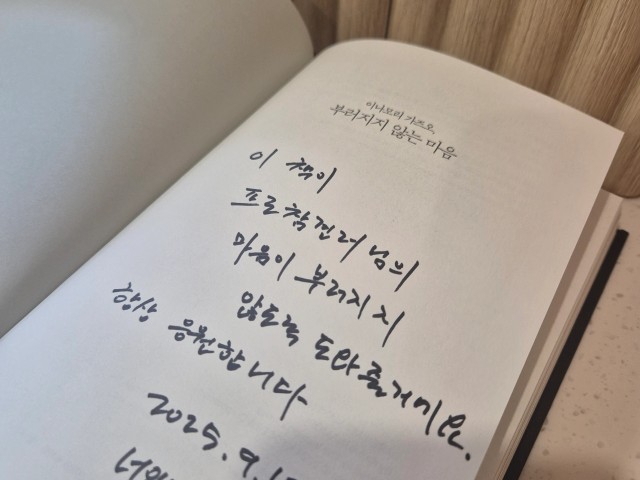 이나모리 가즈오,
부러지지 않는 마음
이 책이
프로참견러님의
마음이 부러지지
않도록 도와줄거예요.
항상 응원합니다
2025. 9.